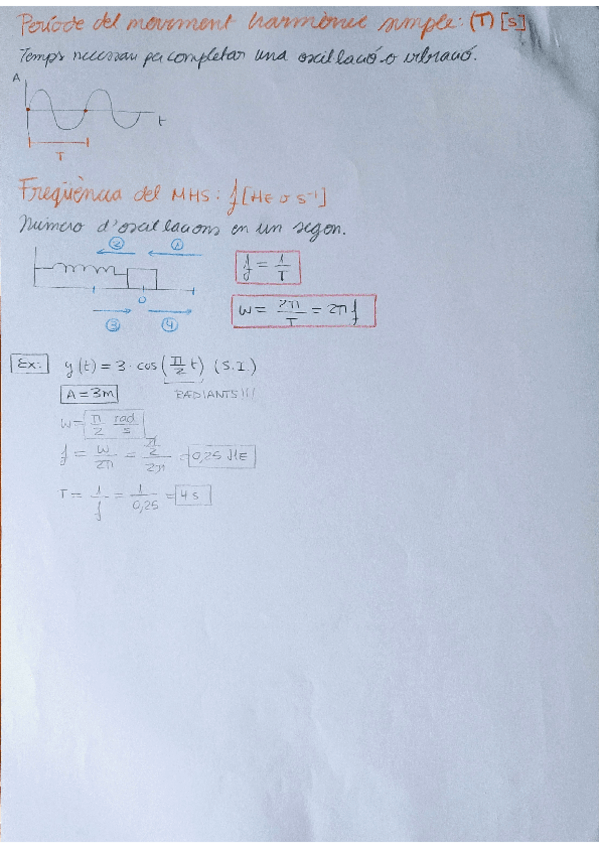 Període del moviment harmònic simple: (T) [s]
Temps necessari per completar una oscil·lació o vibració.
A
t
T
Freqüència del MHS: f [Hz o s⁻¹]
Número d'oscil·lacions en un segon.
② ①
0
③ ④
f = 1/T
ω = 2π/T = 2πf
Ex: y(t) = 3 · cos(π/2 t) (S.I.)
A = 3m RADIANTS!!!
ω = π/2 rad/s
f = ω/2π = (π/2)/2π = 0,25 Hz
T = 1/f = 1/0,25 = 4 s